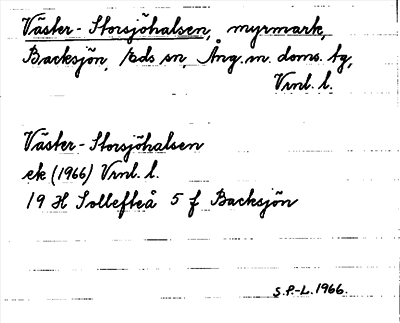 Väster-Storsjöhalsen, myrmark,
Backsjön, Eds sn, Ång. m. doms. tg,
Vrnl. l.
Väster-Storsjöhalsen
ek (1966) Vrnl. l.
19 H Sollefteå 5 f Backsjön
S.P.-L. 1966.